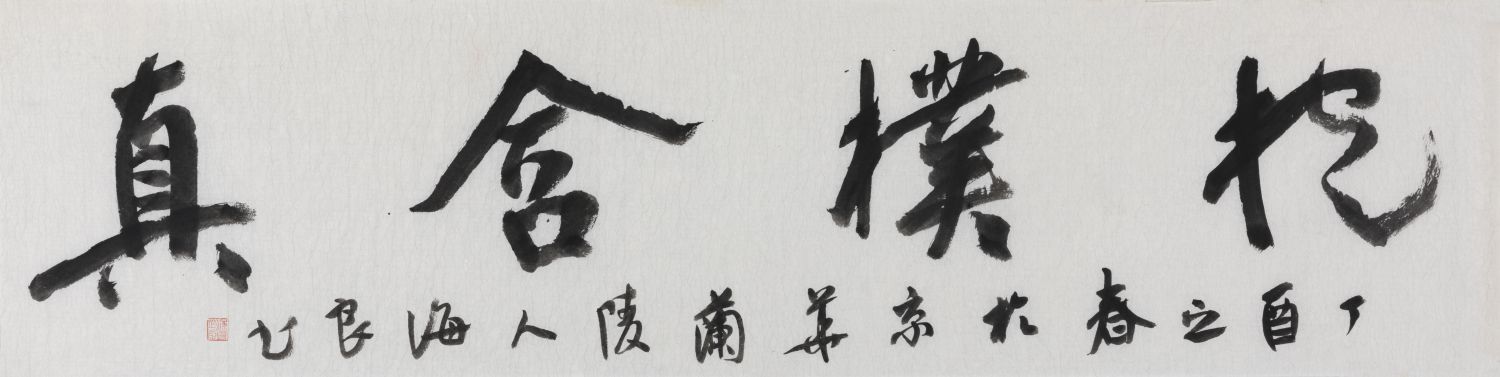 抱樸含真
丁酉之春於京華蘭陵人海良书